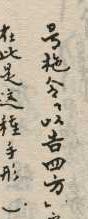 号施令，以告四方」
在此是这種手形（